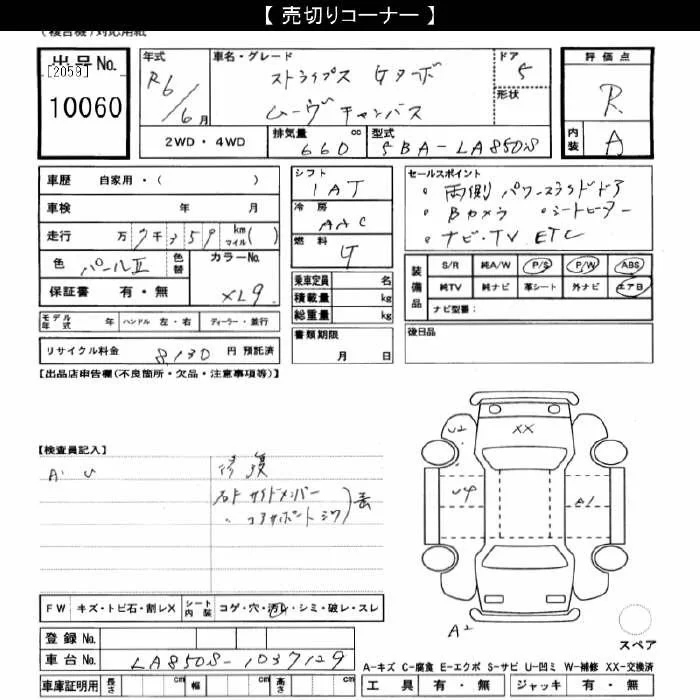 【 売切りコーナー 】
出品No.
[2059]
10060
年式
R6/6月
車名・グレード
ストライプス Gターボ
ムーヴキャンバス
ドア
5
形状
評価点
R
内装
A
2WD・4WD
排気量
660
cc
型式
5BA-LA850S
車歴 自家用・( )
車検 年 月
走行 万7千359 km マイル( )
色 パールⅡ
色替
カラーNo.
XL9
保証書 有・無
モデル年式 年 ハンドル 左・右 ディーラー・並行
リサイクル料金 8,130 円 預託済
シフト
1AT
冷房
AAC
燃料
G
乗車定員 名
積載量 kg
総重量 kg
書類期限
月 日
セールスポイント
・両側パワースライドドア
・Bカメラ ・シートヒーター
・ナビ・TV ETC
装備品
S/R 純A/W P/S P/W ABS
純TV 純ナビ 革シート 外ナビ エアB
ナビ型番:
後日品
【出品店申告欄(不良箇所・欠品・注意事項等)】
【検査員記入】
A・U
修復
右ドサイドメンバー
〃 コアサポートシワ
U2
XX
U4
A1
A2
スペア
FW キズ・トビ石・割レX シート内装 コゲ・穴・汚レ・シミ・破レ・スレ
登録No.
車台No. LA850S-1037129
車庫証明用 長さ cm 幅 cm 高さ cm
A-キズ C-腐食 E-エクボ S-サビ U-凹ミ W-補修 XX-交換済
工具 有・無 ジャッキ 有・無